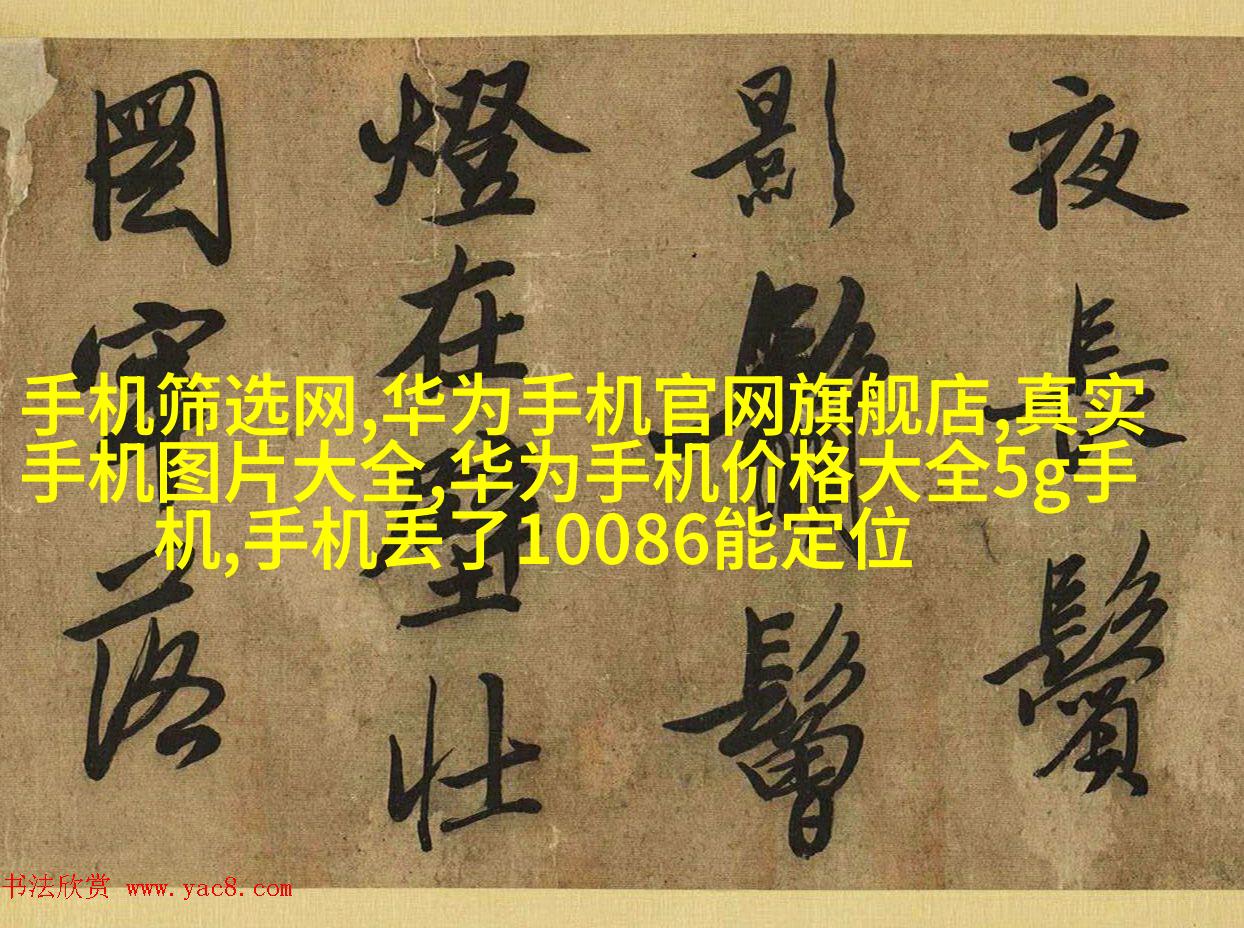 夜長鬢
影鬙
燈在壁壮
落
手机筛选网,华为手机官网旗舰店,真实
手机图片大全,华为手机价格大全5g手
机,手机丢了10086能定位
书法欣赏 www.yac8.com